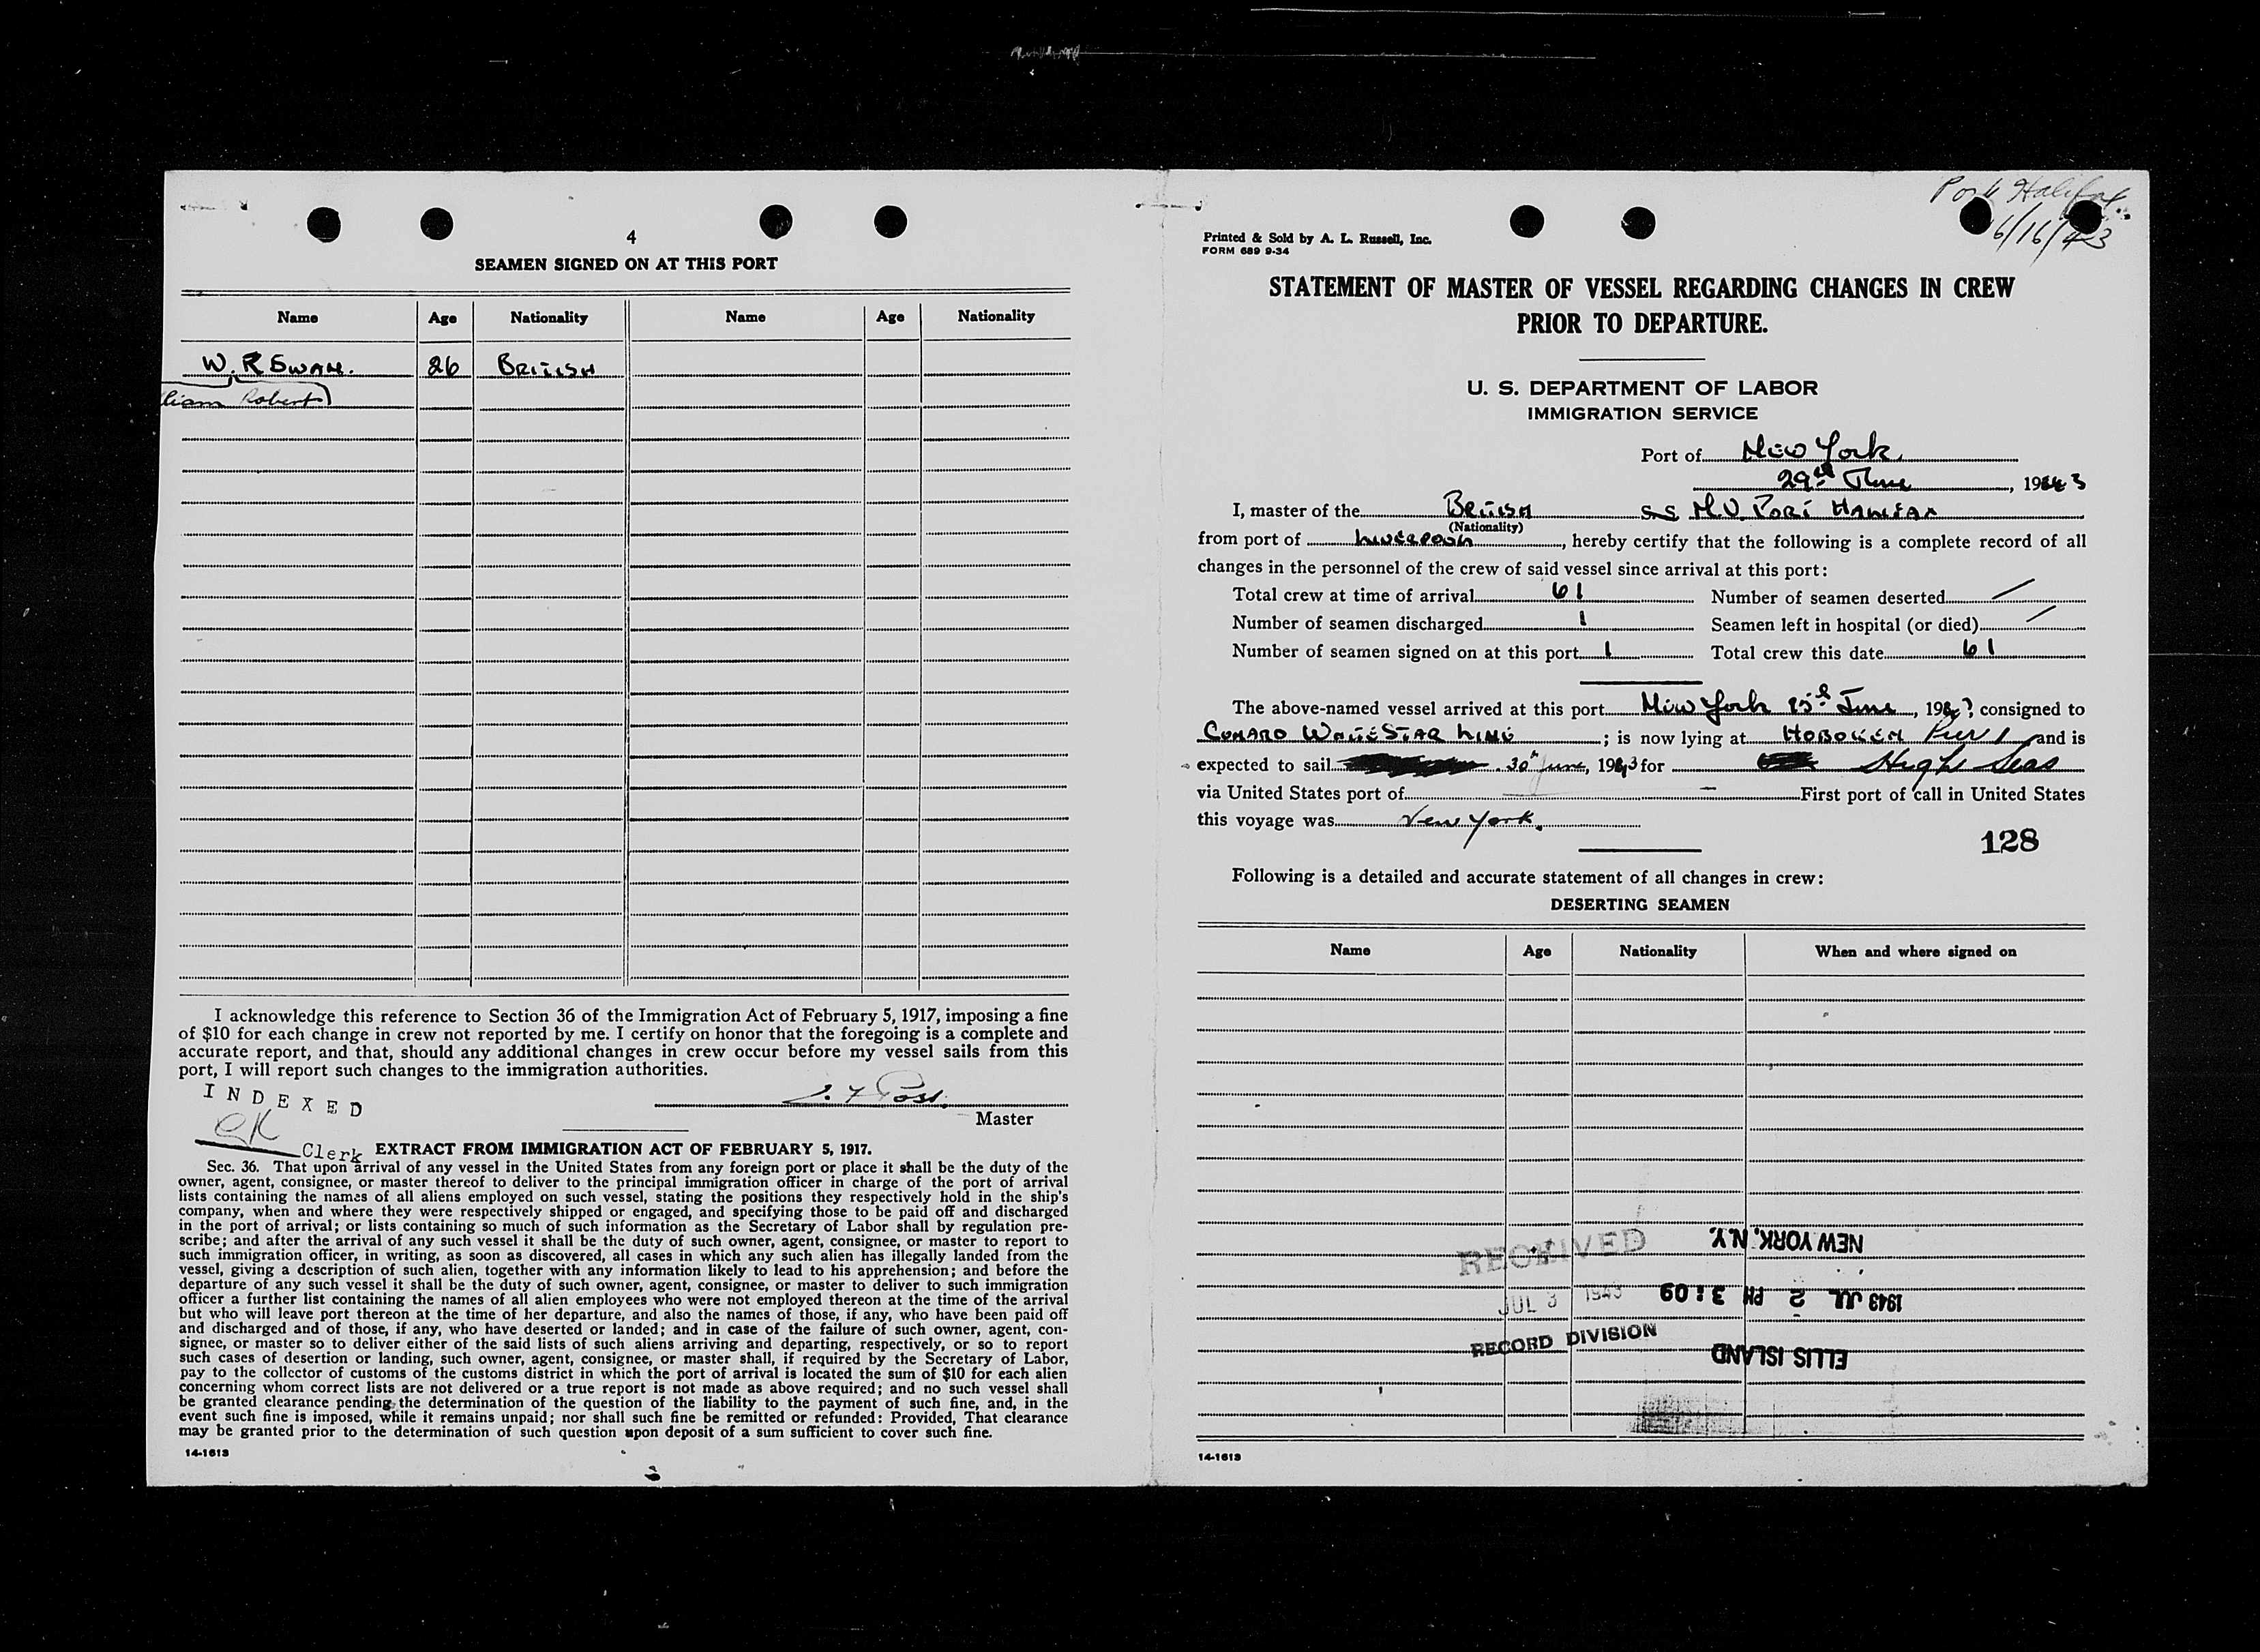 4
SEAMEN SIGNED ON AT THIS PORT
Name Age Nationality Name Age Nationality
W. R SWAN. 26 BRITISH
liam Robert)
I acknowledge this reference to Section 36 of the Immigration Act of February 5, 1917, imposing a fine
of $10 for each change in crew not reported by me. I certify on honor that the foregoing is a complete and
accurate report, and that, should any additional changes in crew occur before my vessel sails from this
port, I will report such changes to the immigration authorities.
INDEXED
Master
Clerk
EXTRACT FROM IMMIGRATION ACT OF FEBRUARY 5, 1917.
Sec. 36. That upon arrival of any vessel in the United States from any foreign port or place it shall be the duty of the
owner, agent, consignee, or master thereof to deliver to the principal immigration officer in charge of the port of arrival
lists containing the names of all aliens employed on such vessel, stating the positions they respectively hold in the ship's
company, when and where they were respectively shipped or engaged, and specifying those to be paid off and discharged
in the port of arrival; or lists containing so much of such information as the Secretary of Labor shall by regulation pre-
scribe; and after the arrival of any such vessel it shall be the duty of such owner, agent, consignee, or master to report to
such immigration officer, in writing, as soon as discovered, all cases in which any such alien has illegally landed from the
vessel, giving a description of such alien, together with any information likely to lead to his apprehension; and before the
departure of any such vessel it shall be the duty of such owner, agent, consignee, or master to deliver to such immigration
officer a further list containing the names of all alien employees who were not employed thereon at the time of the arrival
but who will leave port thereon at the time of her departure, and also the names of those, if any, who have been paid off
and discharged and of those, if any, who have deserted or landed; and in case of the failure of such owner, agent, con-
signee, or master so to deliver either of the said lists of such aliens arriving and departing, respectively, or so to report
such cases of desertion or landing, such owner, agent, consignee, or master shall, if required by the Secretary of Labor,
pay to the collector of customs of the customs district in which the port of arrival is located the sum of $10 for each alien
concerning whom correct lists are not delivered or a true report is not made as above required; and no such vessel shall
be granted clearance pending the determination of the question of the liability to the payment of such fine, and, in the
event such fine is imposed, while it remains unpaid; nor shall such fine be remitted or refunded: Provided, That clearance
may be granted prior to the determination of such question upon deposit of a sum sufficient to cover such fine.
14-1613
Port Halifax
6/16/43
Printed & Sold by A. L. Russell, Inc.
FORM 689 9-34
STATEMENT OF MASTER OF VESSEL REGARDING CHANGES IN CREW
PRIOR TO DEPARTURE.
U. S. DEPARTMENT OF LABOR
IMMIGRATION SERVICE
Port of New York
29th June, 1943
I, master of the British S.S M.V. PORT HALIFAX
(Nationality)
from port of LIVERPOOL, hereby certify that the following is a complete record of all
changes in the personnel of the crew of said vessel since arrival at this port:
Total crew at time of arrival 61 Number of seamen deserted /
Number of seamen discharged 1 Seamen left in hospital (or died) /
Number of seamen signed on at this port 1 Total crew this date 61
The above-named vessel arrived at this port New York June, 194 consigned to
CUNARD WHITE STAR LINE; is now lying at HOBOKEN Pier 1 and is
expected to sail 30th June, 1943 for High Seas
via United States port of — First port of call in United States
this voyage was New York.
128
Following is a detailed and accurate statement of all changes in crew:
DESERTING SEAMEN
Name Age Nationality When and where signed on
RECEIVED
JUL 3 1943
RECORD DIVISION
ELLIS ISLAND
1943 JUL 2 PM 3:09
NEW YORK, N.Y.
14-1613